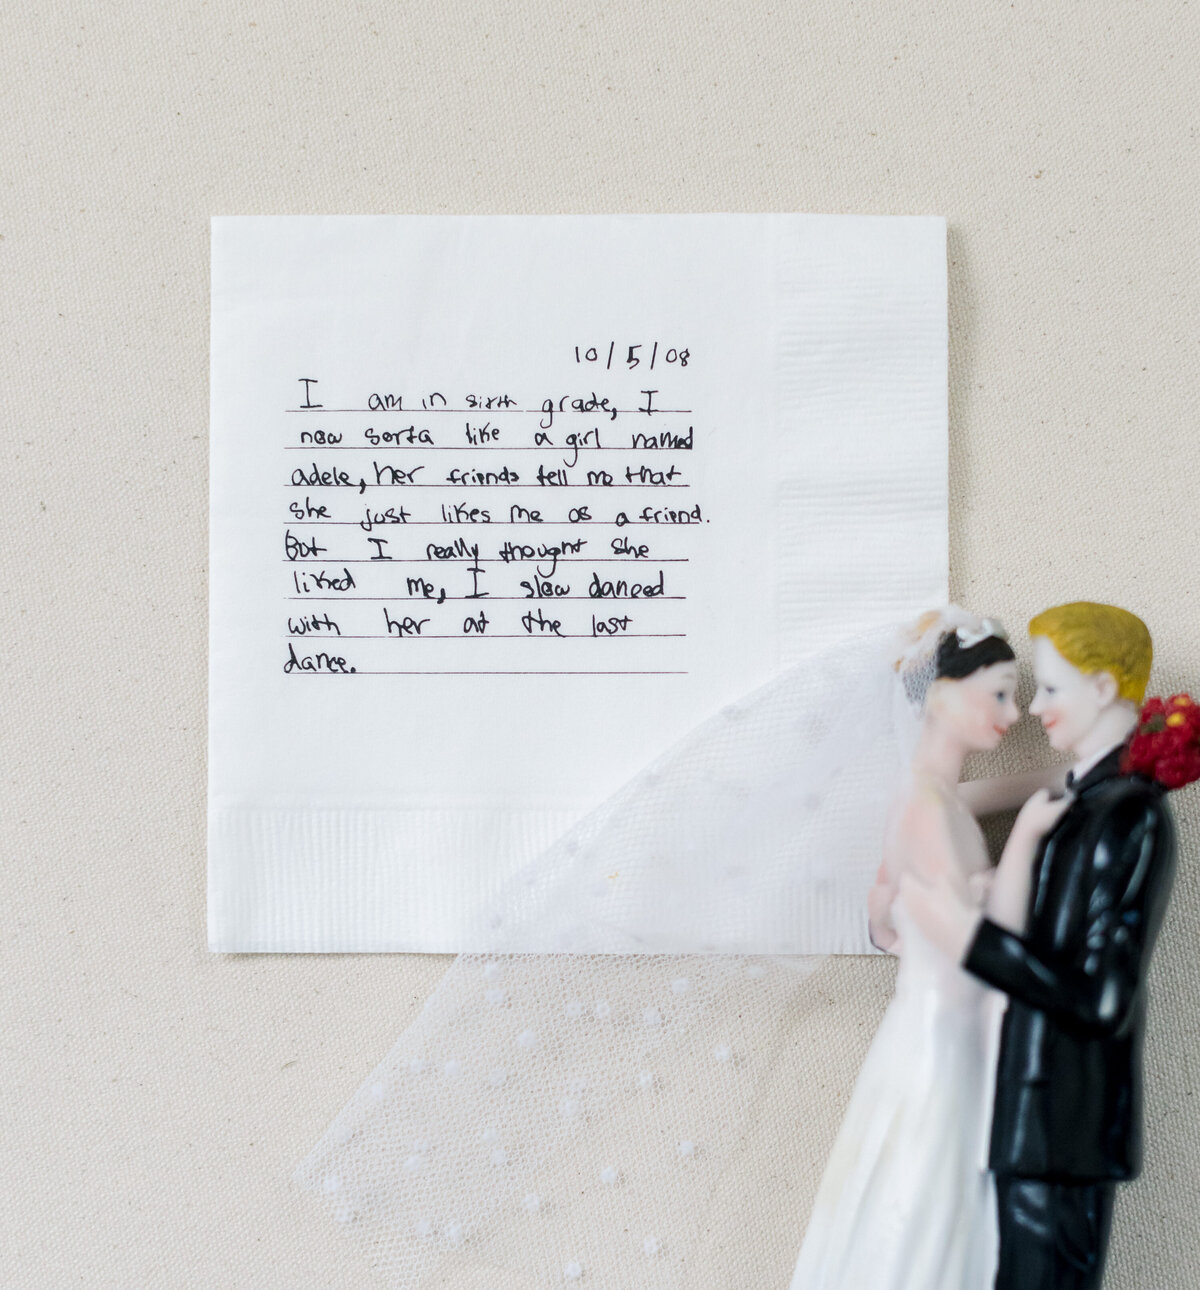 10/5/08
I am in sixth grade, I
now sorta like a girl named
adele, her friends tell me that
she just likes me as a friend.
But I really thought she
liked me, I slow danced
with her at the last
dance.